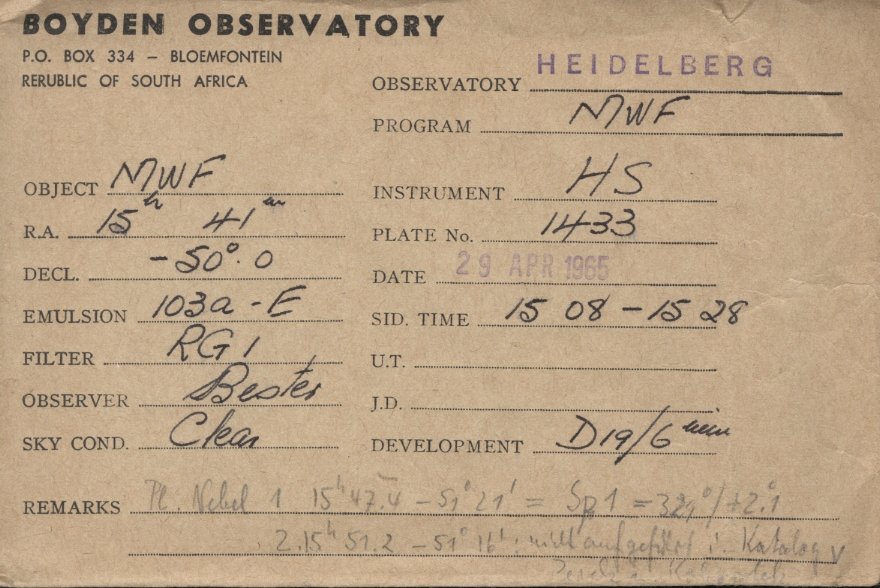 BOYDEN OBSERVATORY
P.O. BOX 334 – BLOEMFONTEIN
RERUBLIC OF SOUTH AFRICA
OBSERVATORY HEIDELBERG
PROGRAM MWF
OBJECT MWF
INSTRUMENT HS
R.A. 15h 41m
PLATE No. 1433
DECL. -50°.0
DATE 29 APR 1965
EMULSION 103a-E
SID. TIME 15 08 – 15 28
FILTER RG1
U.T.
OBSERVER Bester
J.D.
SKY COND. Clear
DEVELOPMENT D19/6 min
REMARKS Pl. Nebel 1 15h 47.4 – 51° 21' = Sp1 =
2. 15h 51.2 – 51° 16': nicht aufgeführt i. Katalog v